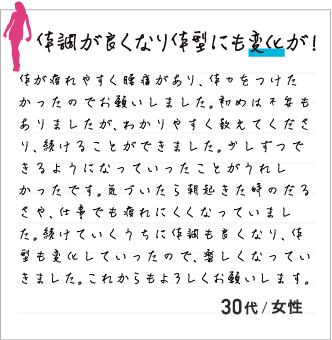 体調が良くなり体型にも変化が！
体が疲れやすく腰痛があり、体力をつけた
かったのでお願いしました。初めは不安も
ありましたが、わかりやすく教えてくださ
り、続けることができました。少しずつで
きるようになっていったことがうれし
かったです。気づいたら朝起きた時のだる
さや、仕事でも疲れにくくなっていまし
た。続けていくうちに体調も良くなり、体
型も変化していったので、楽しくなってい
きました。これからもよろしくお願いします。
30代 / 女性